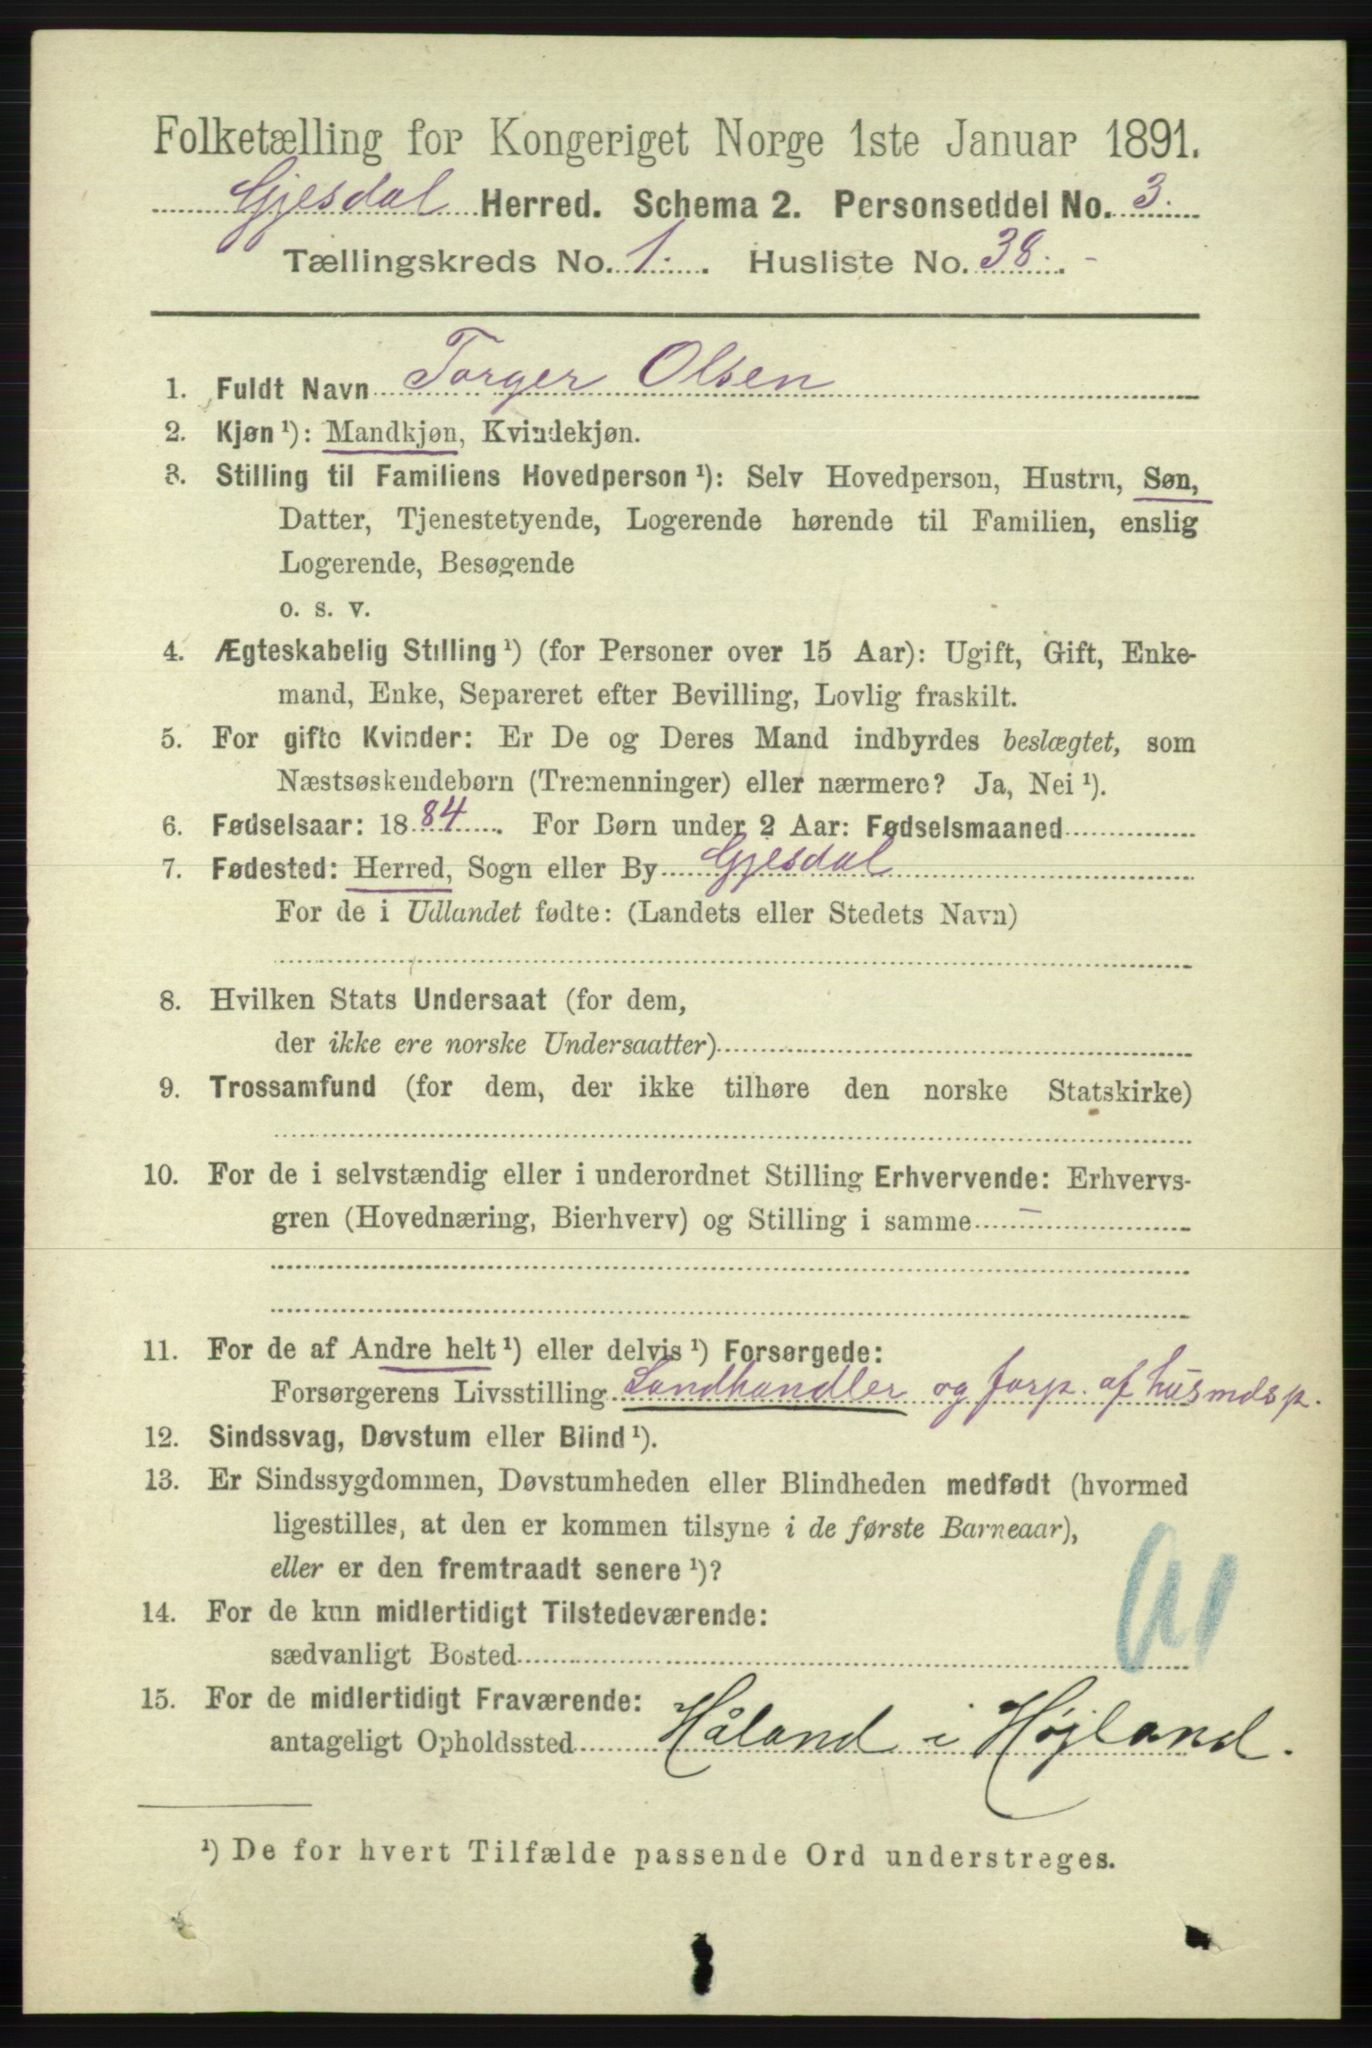 Folketælling for Kongeriget Norge 1ste Januar 1891.
Gjesdal Herred. Schema 2. Personseddel No. 3.
Tællingskreds No. 1. Husliste No. 38.
1. Fuldt Navn Torger Olsen
2. Kjøn¹): Mandkjøn, Kvindekjøn.
3. Stilling til Familiens Hovedperson¹): Selv Hovedperson, Hustru, Søn,
Datter, Tjenestetyende, Logerende hørende til Familien, enslig
Logerende, Besøgende
o. s. v.
4. Ægteskabelig Stilling¹) (for Personer over 15 Aar): Ugift, Gift, Enke-
mand, Enke, Separeret efter Bevilling, Lovlig fraskilt.
5. For gifte Kvinder: Er De og Deres Mand indbyrdes beslægtet, som
Næstsøskendebørn (Tremenninger) eller nærmere? Ja, Nei¹).
6. Fødselsaar: 1884. For Børn under 2 Aar: Fødselsmaaned
7. Fødested: Herred, Sogn eller By Gjesdal
For de i Udlandet fødte: (Landets eller Stedets Navn)
8. Hvilken Stats Undersaat (for dem,
der ikke ere norske Undersaatter)
9. Trossamfund (for dem, der ikke tilhøre den norske Statskirke)
10. For de i selvstændig eller i underordnet Stilling Erhvervende: Erhvervs-
gren (Hovednæring, Bierhverv) og Stilling i samme –
11. For de af Andre helt¹) eller delvis¹) Forsørgede:
Forsørgerens Livsstilling Landhandler og forp. af husmdsp.
12. Sindssvag, Døvstum eller Blind¹).
13. Er Sindssygdommen, Døvstumheden eller Blindheden medfødt (hvormed
ligestilles, at den er kommen tilsyne i de første Barneaar),
eller er den fremtraadt senere¹)?
14. For de kun midlertidigt Tilstedeværende:
sædvanligt Bosted
15. For de midlertidigt Fraværende:
antageligt Opholdssted Håland i Højland.
¹) De for hvert Tilfælde passende Ord understreges.